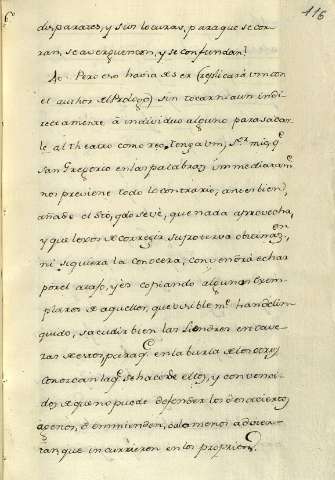 116
disparates, y sus locuras, para que se cor-
ran, se averguencen, y se confundan?
Pero eso havia de ser (replicará un con
el author del Prologo) sin tocar ni aun indi-
rectamente á individuo alguno para sacar-
le al theatro como reo. Tenga vm. Sr. mio, q̃
San Gregorio en las palabras immediatamte.
nos previene todo lo contrario; antes bien,
añade el Sto, qdo se vè, que nada aprovecha,
y que lexos de corregir su proterva obstinaon.
ni siquiera la conocera, convendrà echar
por el atajo, y es copiando algunos exem-
plares de aquellos, que visiblemte. han delin-
quido, sacudir bien las liendres en cave-
zas de estos, para q̃ en la burla de los otros
conozcan la q̃ se hace de ellos, y convenci-
dos de que no puede defender los desaciertos
agenos, ô enmienden, ô a lo menos advier-
tan, que incurrieron en los proprios.